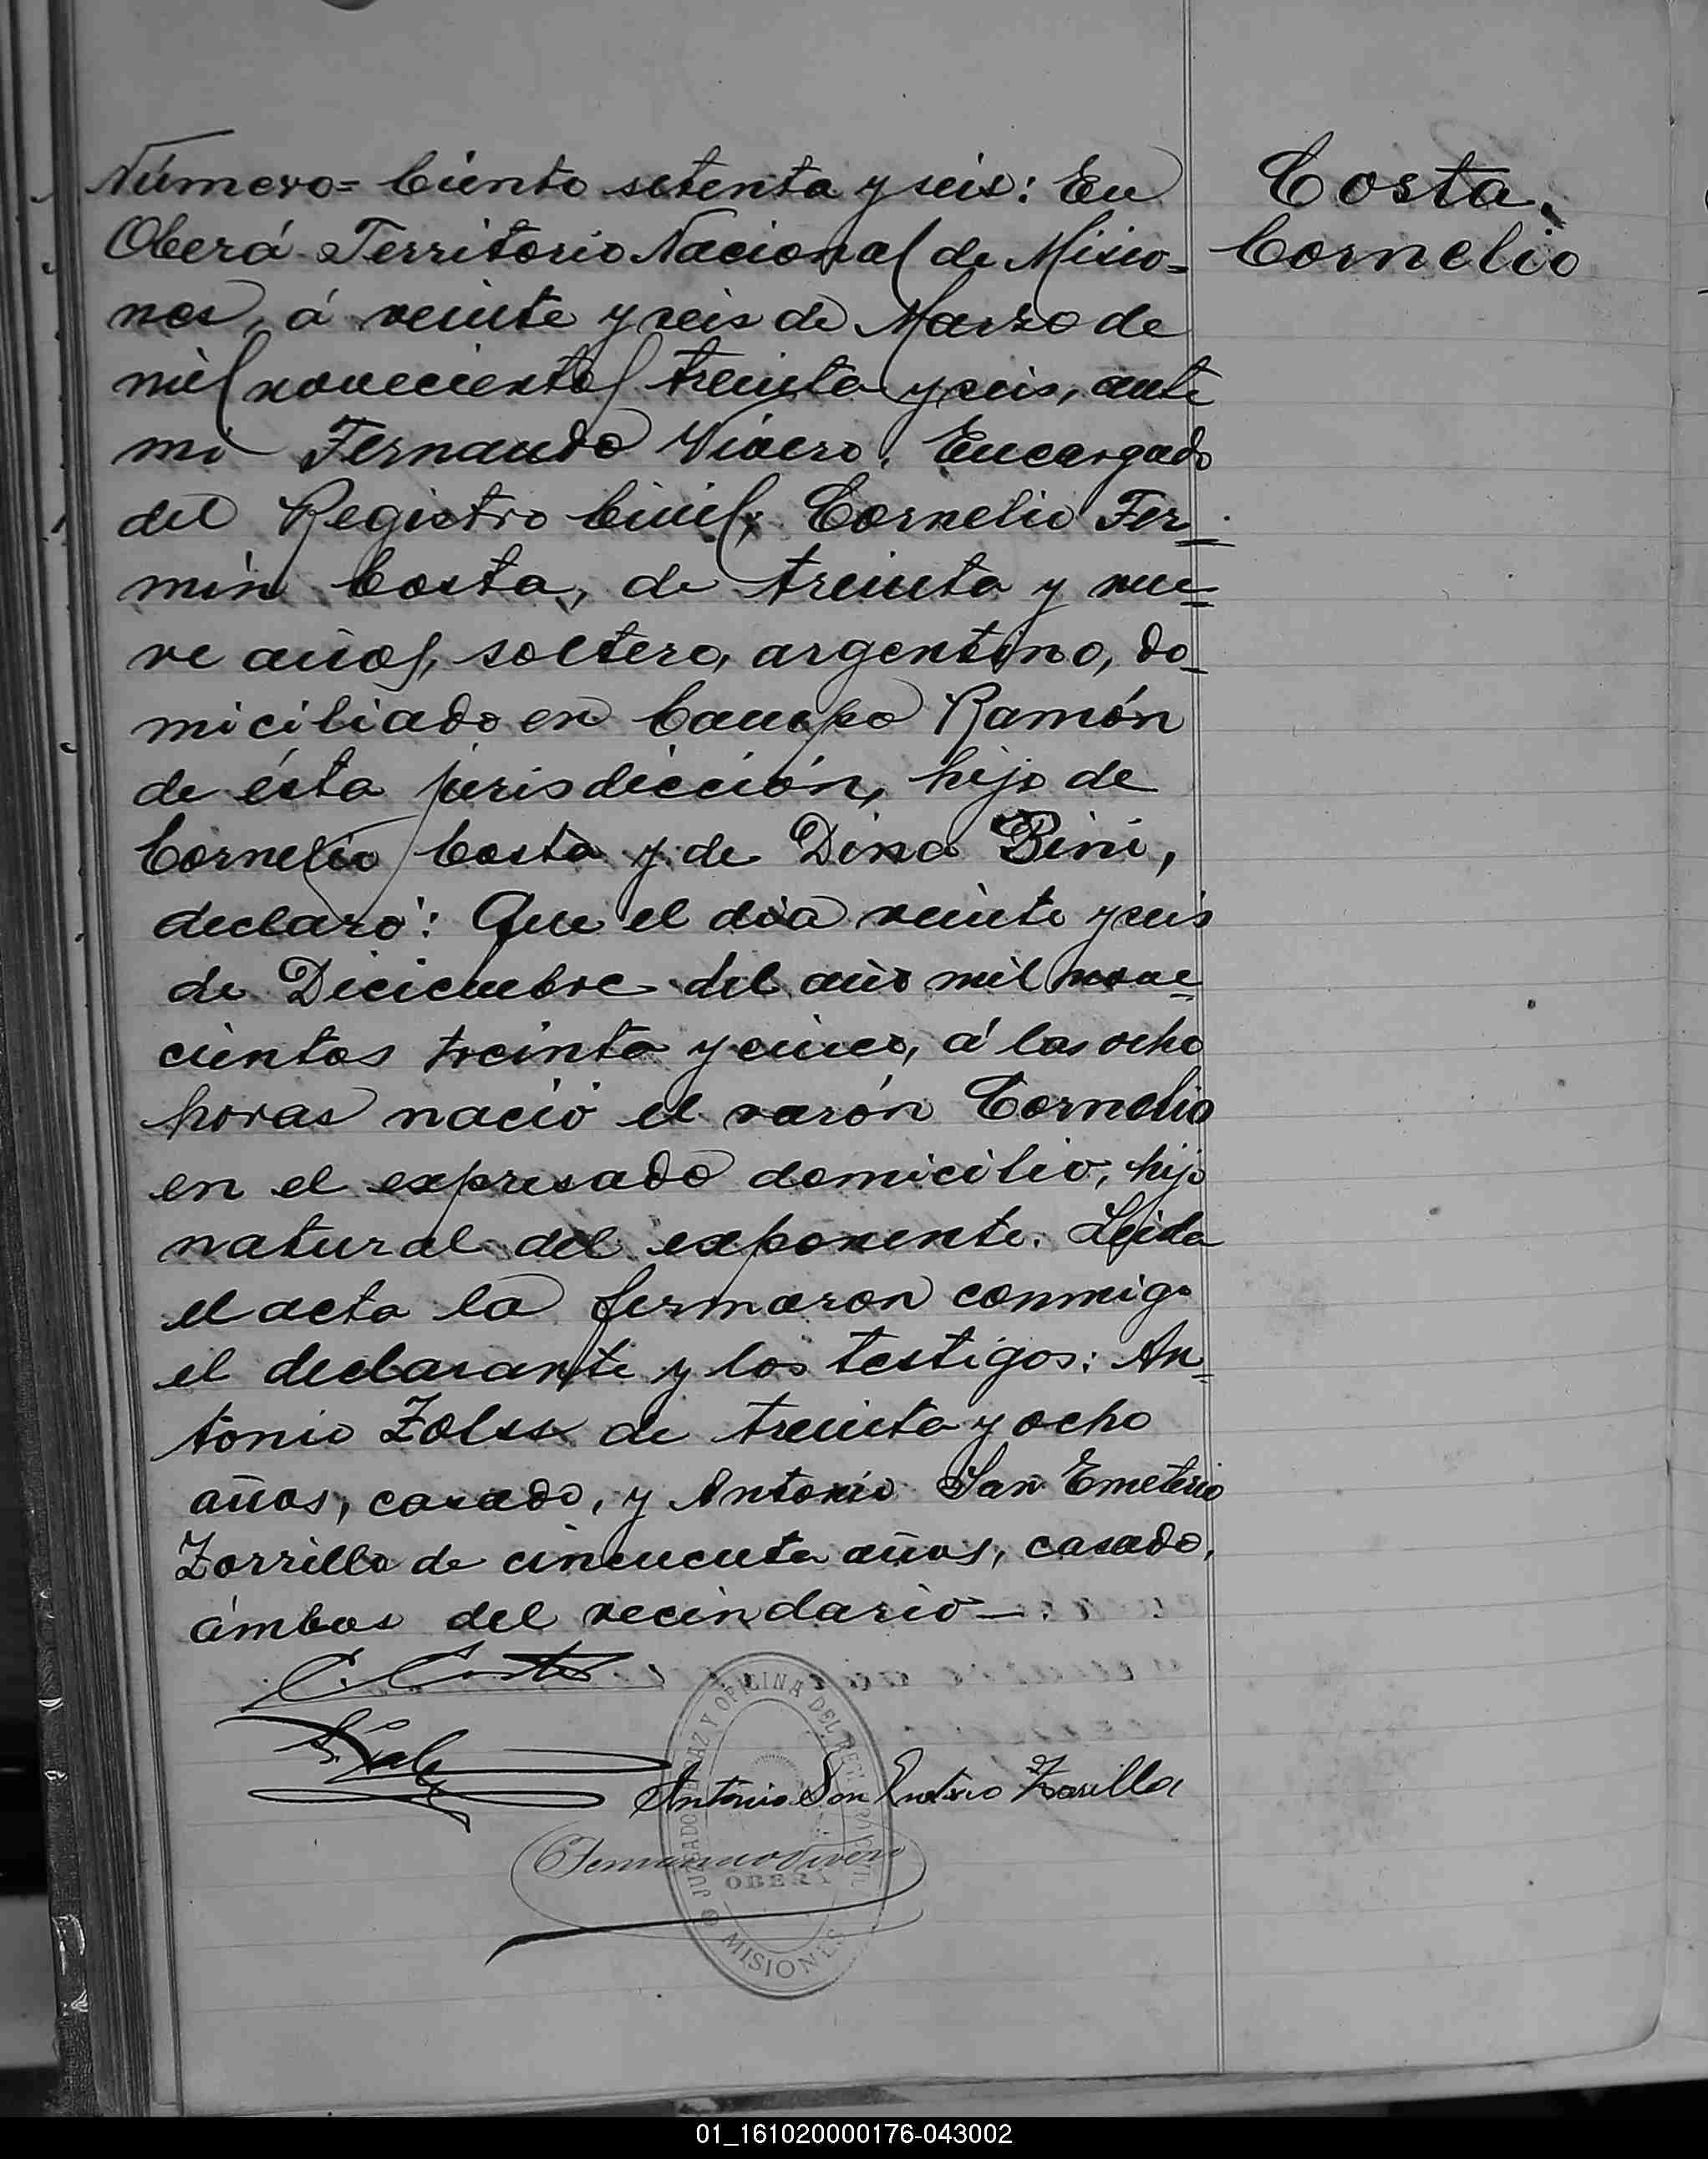 Número= Ciento setenta y seis: En
Oberá Territorio Nacional de Misio=
nes, á veinte y seis de Marzo de
mil novecientos treinta y seis, ante
mi Fernando Vivero, Encargado
del Registro Civil; Cornelio Fer=
mín Costa, de treinta y nue=
ve años, soltero, argentino, do=
miciliado en Campo Ramón
de ésta jurisdicción, hijo de
Cornelio Costa y de Dina Bini,
declaró: Que el día veinte y seis
de Diciembre del año mil nove=
cientos treinta y cinco, á las ocho
horas nació el varón Cornelio
en el expresado domicilio, hijo
natural del exponente. Leida
el acta la firmaron conmigo
el declarante y los testigos: An=
tonio de treinta y ocho
años, casado, y Antonio San Emeterio
Zorrilla de cincuenta años, casado,
ámbos del vecindario—.
Costa,
Cornelio
C. Costa
Antonio San Emeterio Zorrilla
Fernando Vivero
JUZGADO DE PAZ Y OFICINA DEL REGISTRO CIVIL
OBERÁ
MISIONES
01_161020000176-043002